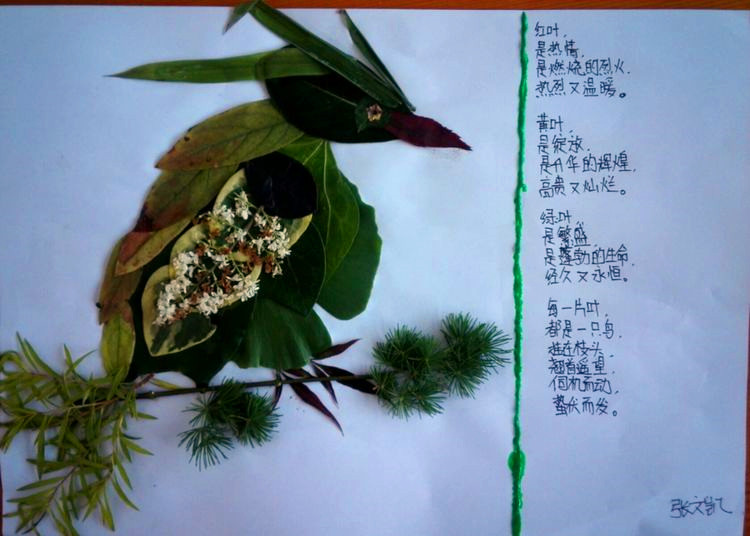 红叶,
是热情,
是燃烧的烈火,
热烈又温暖。
黄叶,
是绽放,
是升华的辉煌,
高贵又灿烂。
绿叶
是繁盛,
是蓬勃的生命,
经久又永恒。
每一片叶,
都是一只鸟,
挂在枝头,
翘首遥望,
伺机而动,
蛰伏而发。
张文凯